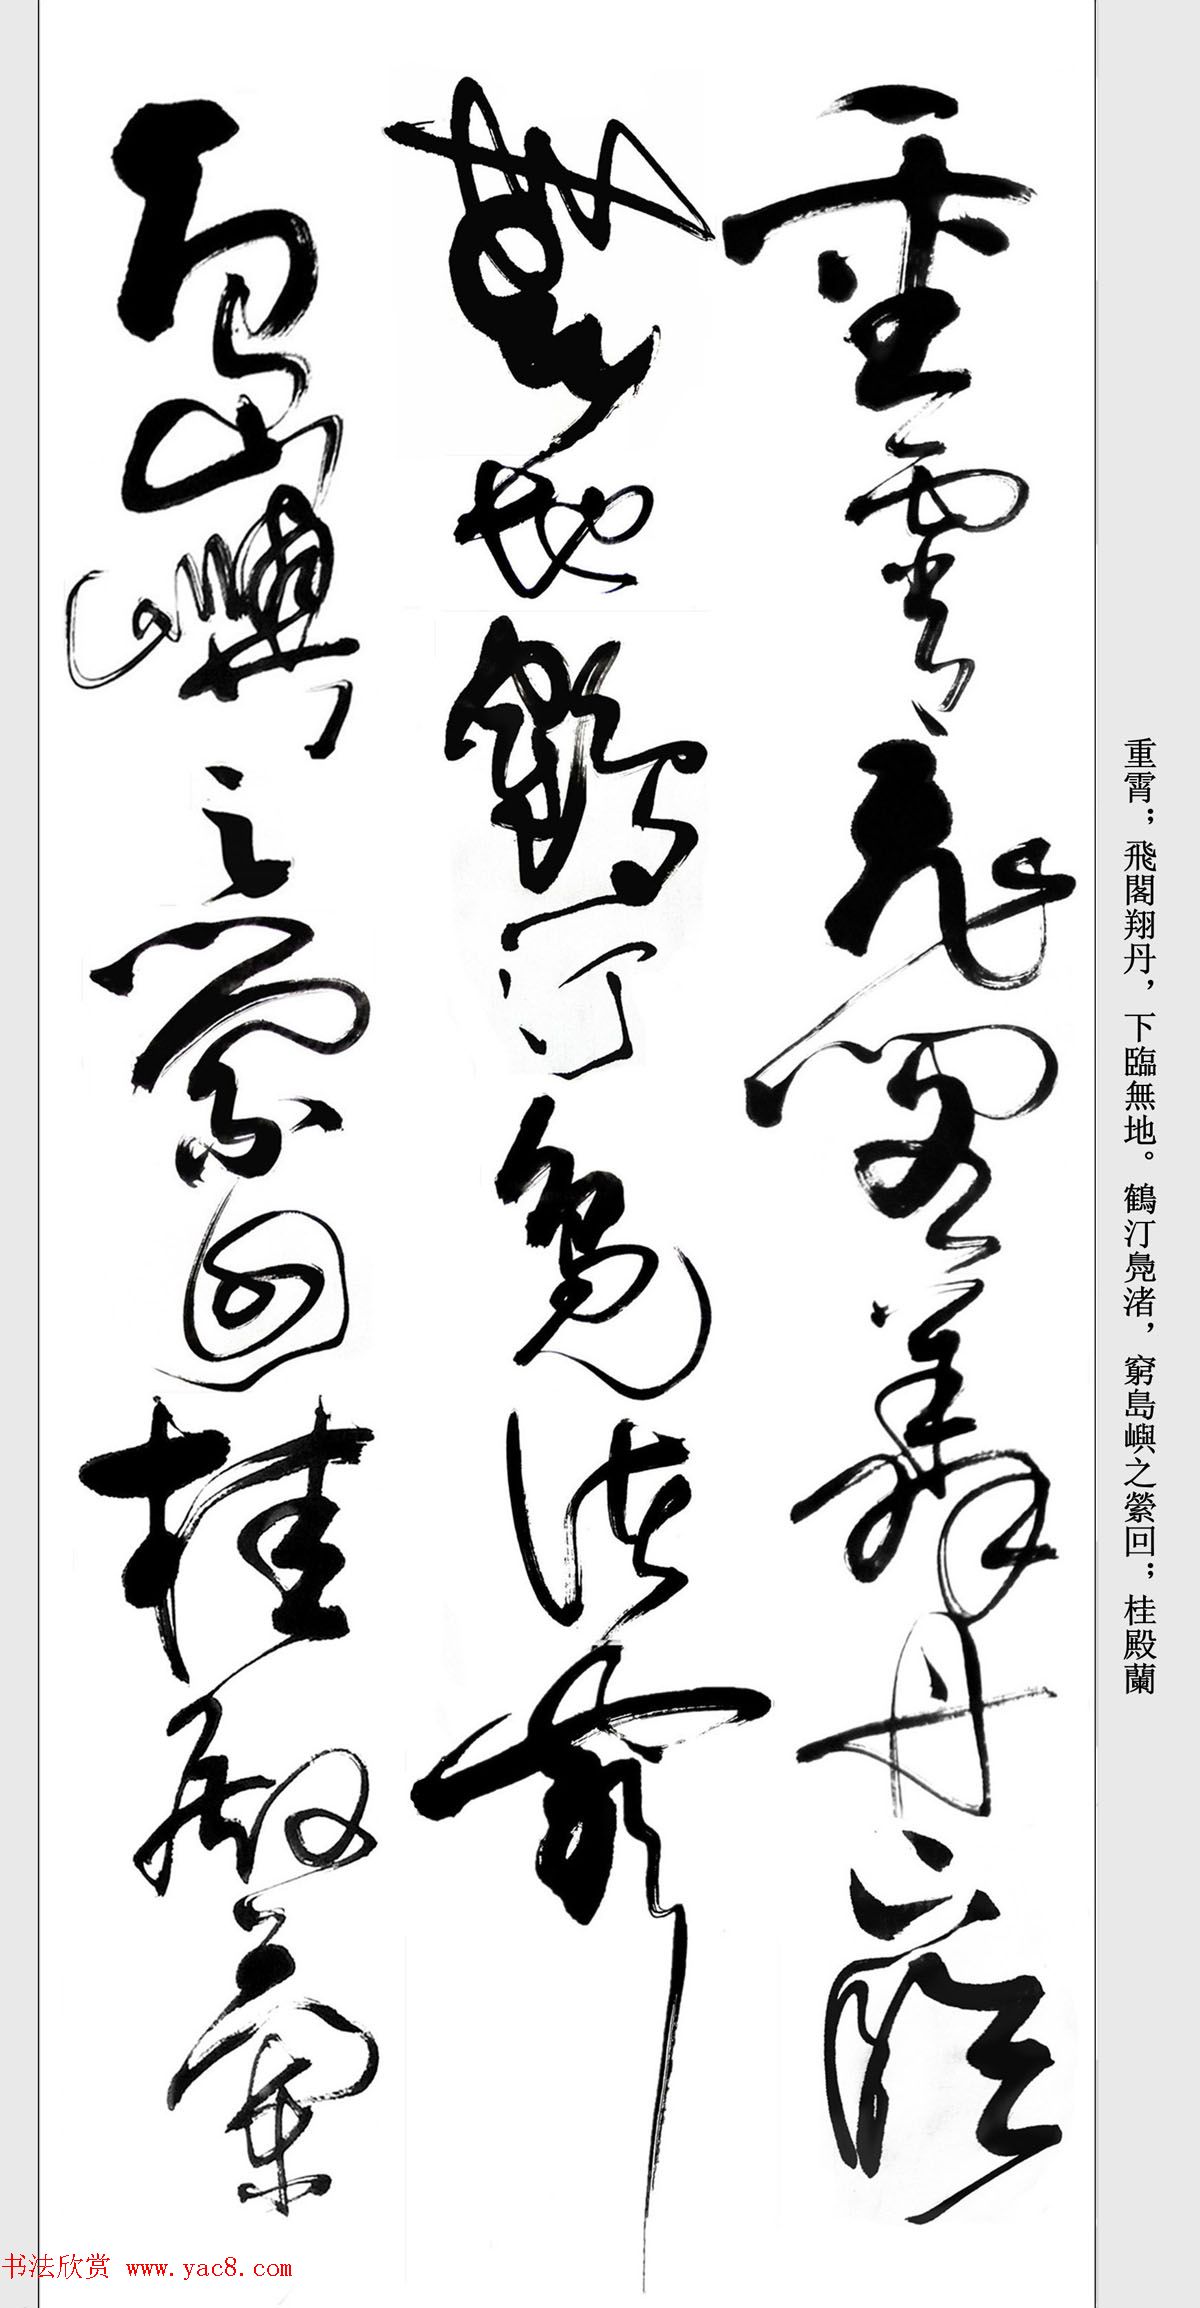 重霄飛閣翔丹下臨
無地鶴汀鳧渚窮
島嶼之縈回桂殿蘭
重霄；飛閣翔丹，下臨無地。鶴汀鳧渚，窮島嶼之縈回；桂殿蘭
书法欣赏 www.yac8.com